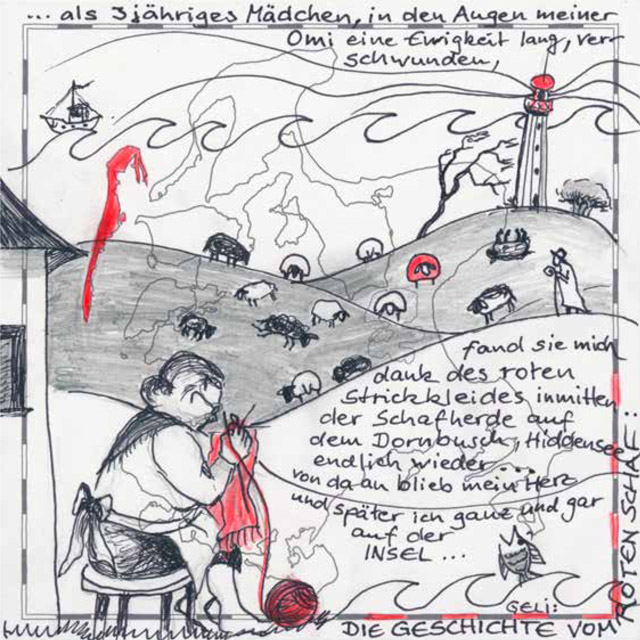 ... als 3jähriges Mädchen, in den Augen meiner
Omi eine Ewigkeit lang, ver-
schwunden,
fand sie mich
dank des roten
Strickkleides inmitten
der Schafherde auf
dem Dornbusch, Hiddensee
endlich wieder ...
von da an blieb mein Herz
und später ich ganz und gar
auf der
INSEL ...
GELI:
DIE GESCHICHTE VOM
ROTEN SCHAF: